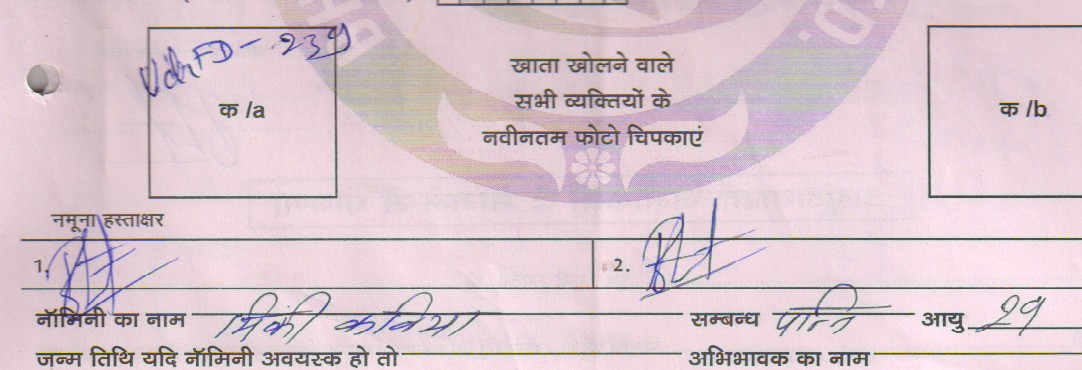 FD - 239
क /a
खाता खोलने वाले
सभी व्यक्तियों के
नवीनतम फोटो चिपकाएं
क /b
नमूना हस्ताक्षर
1.
2.
नॉमिनी का नाम कविया सम्बन्ध पत्नि आयु 29
जन्म तिथि यदि नॉमिनी अवयस्क हो तो अभिभावक का नाम